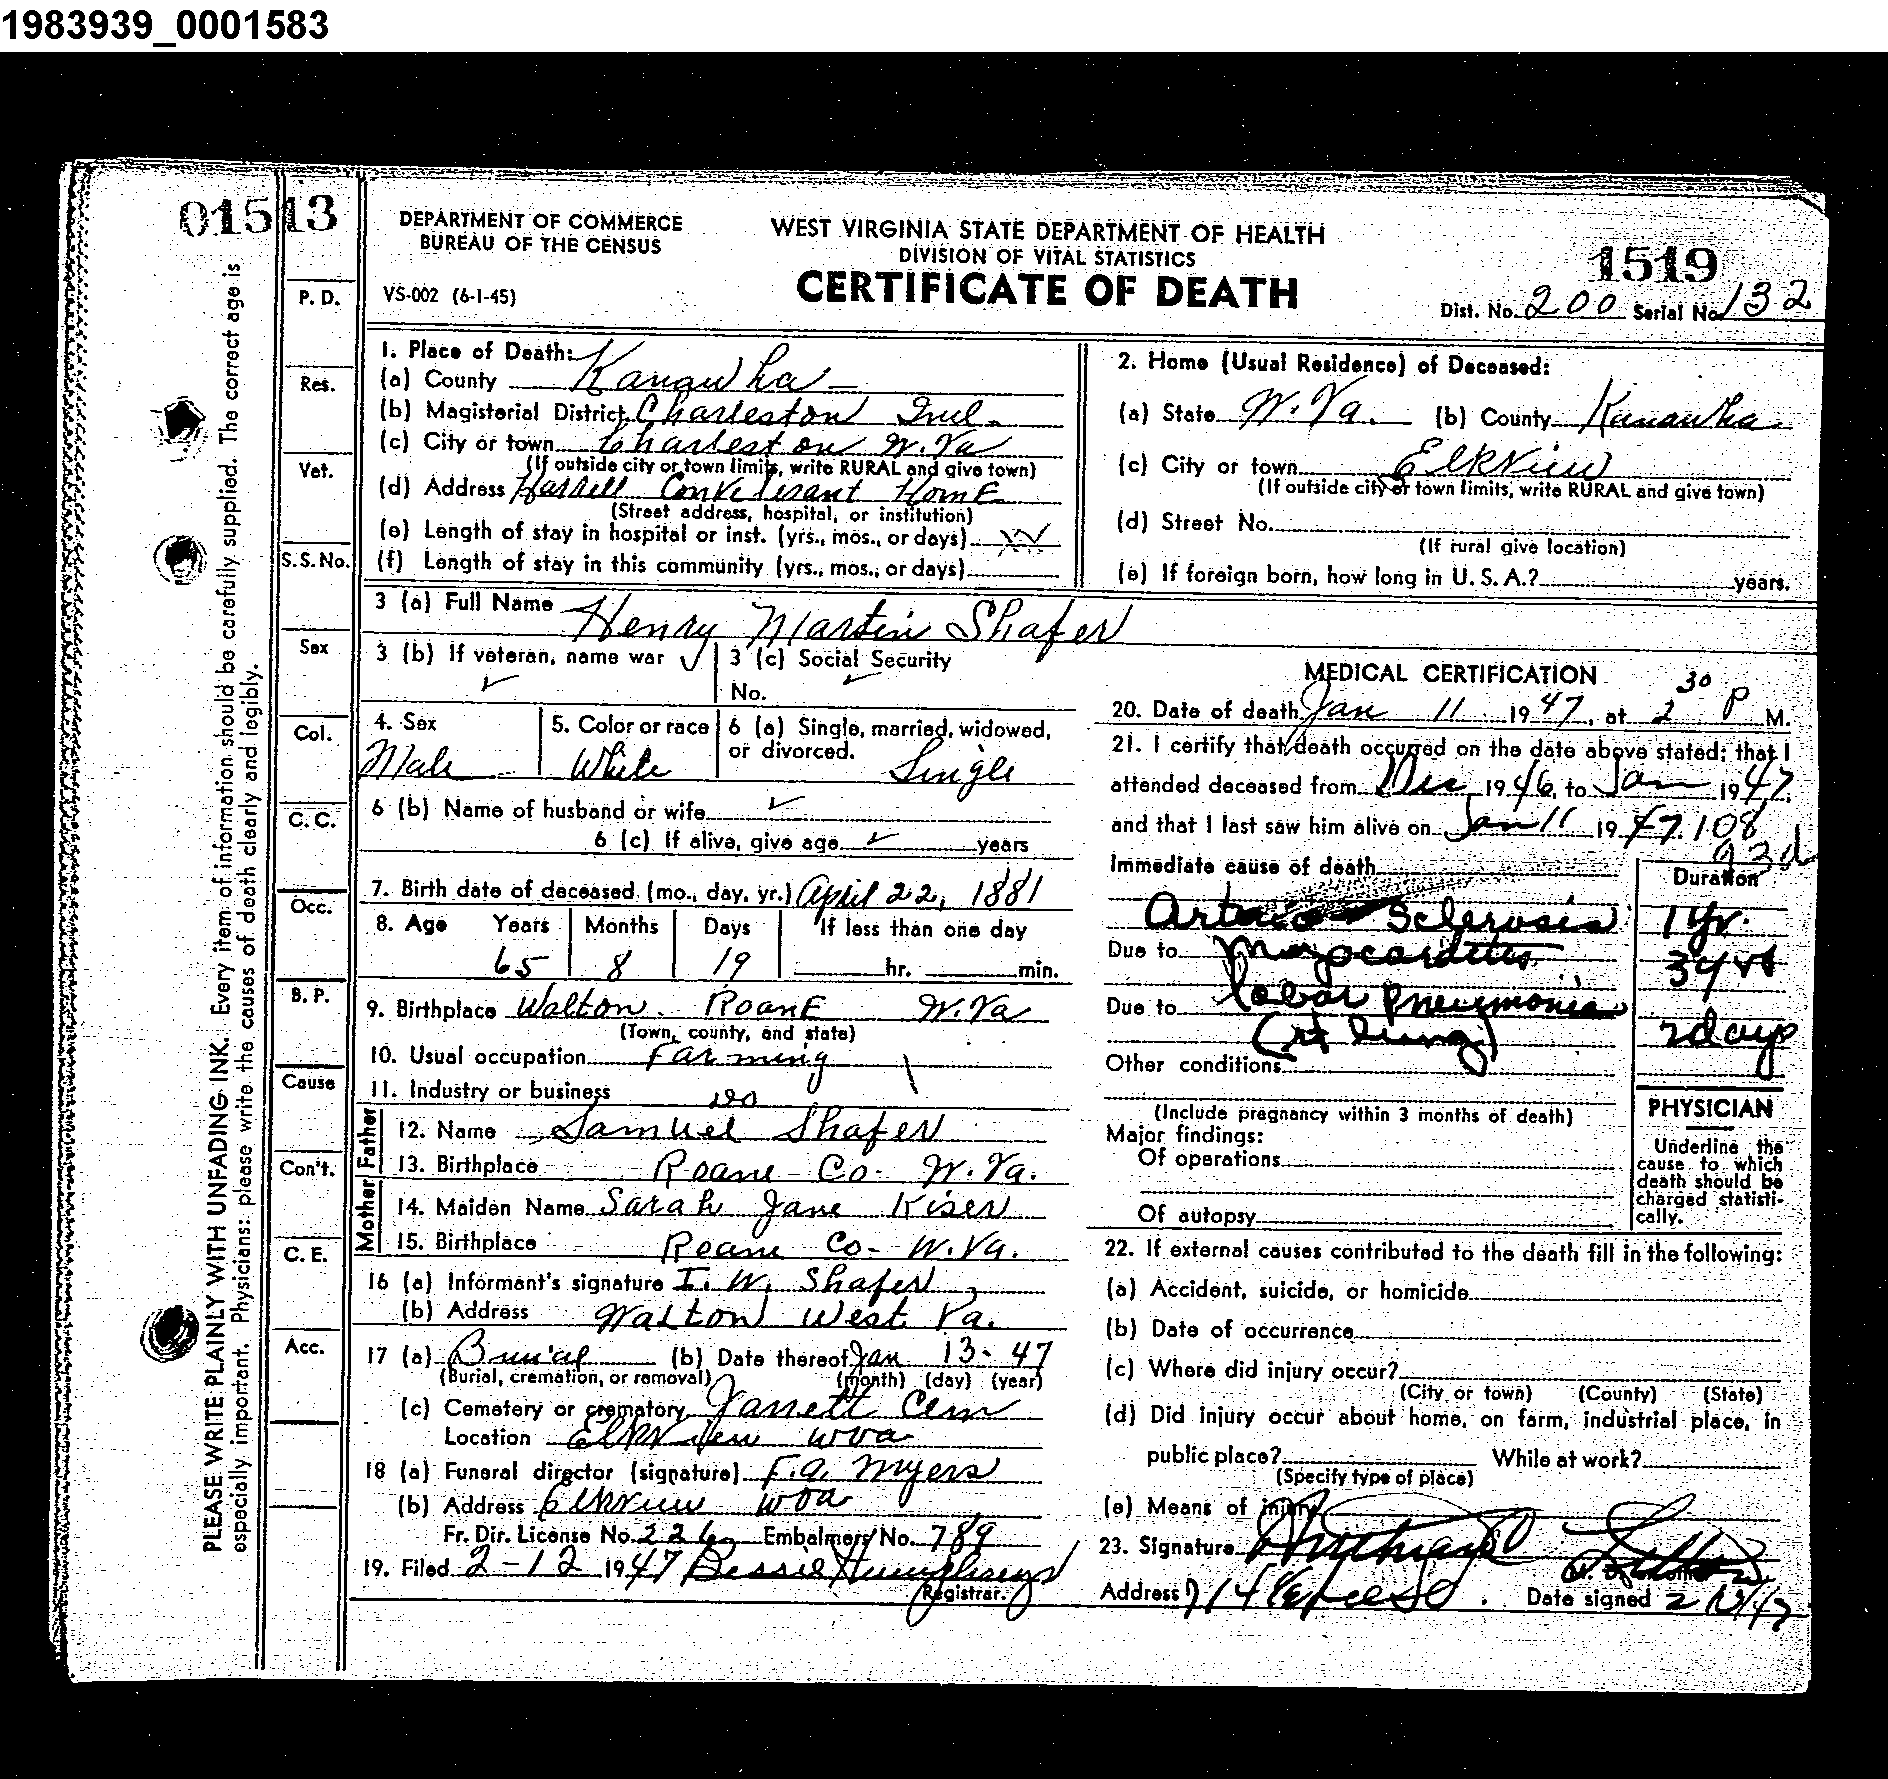 1983939_0001583
01513
DEPARTMENT OF COMMERCE
BUREAU OF THE CENSUS
VS-002 (6-1-45)
WEST VIRGINIA STATE DEPARTMENT OF HEALTH
DIVISION OF VITAL STATISTICS
CERTIFICATE OF DEATH
1519
Dist. No. 200 Serial No. 132
PLEASE WRITE PLAINLY WITH UNFADING INK. Every item of information should be carefully supplied. The correct age is
especially important. Physicians: please write the causes of death clearly and legibly.
P. D.
Res.
Vet.
S.S. No.
Sex
Col.
C. C.
Occ.
B. P.
Cause
Con't.
C. E.
Acc.
1. Place of Death:
(a) County Kanawha
(b) Magisterial District Charleston Ind.
(c) City or town Charleston W. Va
(If outside city or town limits, write RURAL and give town)
(d) Address Convelesant Home
(Street address, hospital, or institution)
(e) Length of stay in hospital or inst. (yrs., mos., or days)
(f) Length of stay in this community (yrs., mos., or days)
2. Home (Usual Residence) of Deceased:
(a) State W. Va. (b) County Kanawha
(c) City or town Elkview
(If outside city or town limits, write RURAL and give town)
(d) Street No.
(If rural give location)
(e) If foreign born, how long in U. S. A.? years.
3 (a) Full Name Henry Martin Shafer
3 (b) If veteran, name war ✓
✓
3 (c) Social Security
No. ✓
4. Sex Male
5. Color or race White
6 (a) Single, married, widowed,
or divorced. Single
6 (b) Name of husband or wife ✓
6 (c) If alive, give age ✓ years
7. Birth date of deceased (mo., day, yr.) April 22, 1881
8. Age Years Months Days If less than one day
65 8 19 hr. min.
9. Birthplace Walton Roane W. Va
(Town, county, and state)
10. Usual occupation Farming
11. Industry or business Do
Father
12. Name Samuel Shafer
13. Birthplace Roane Co. W. Va.
Mother
14. Maiden Name Sarah Jane Kiser
15. Birthplace Roane Co. W. Va.
16 (a) Informant's signature I. W. Shafer
(b) Address Walton West Va.
17 (a) Burial (b) Date thereof Jan 13-47
(Burial, cremation, or removal) (month) (day) (year)
(c) Cemetery or crematory Jarrett Cem
Location Elkview wva
18 (a) Funeral director (signature) F. A. Myers
(b) Address Elkview wva
Fr. Dir. License No. 226 Embalmers No. 789
19. Filed 2-12 1947 Bessie Humphreys
Registrar.
MEDICAL CERTIFICATION
20. Date of death Jan 11 1947, at 2 30 P M.
21. I certify that death occurred on the date above stated; that I
attended deceased from Dec 1946, to Jan 1947
and that I last saw him alive on Jan 11 1947. 108
93d
Immediate cause of death Duration
Arterio Sclerosis 1 yr.
Due to Myocarditis 3 yrs
Due to lobar pneumonia
(rt lung) 2 days
Other conditions
(Include pregnancy within 3 months of death)
Major findings:
Of operations
Of autopsy
PHYSICIAN
Underline the
cause to which
death should be
charged statisti-
cally.
22. If external causes contributed to the death fill in the following:
(a) Accident, suicide, or homicide
(b) Date of occurrence
(c) Where did injury occur?
(City or town) (County) (State)
(d) Did injury occur about home, on farm, industrial place, in
public place? While at work?
(Specify type of place)
(e) Means of injury
23. Signature
Address Date signed 2